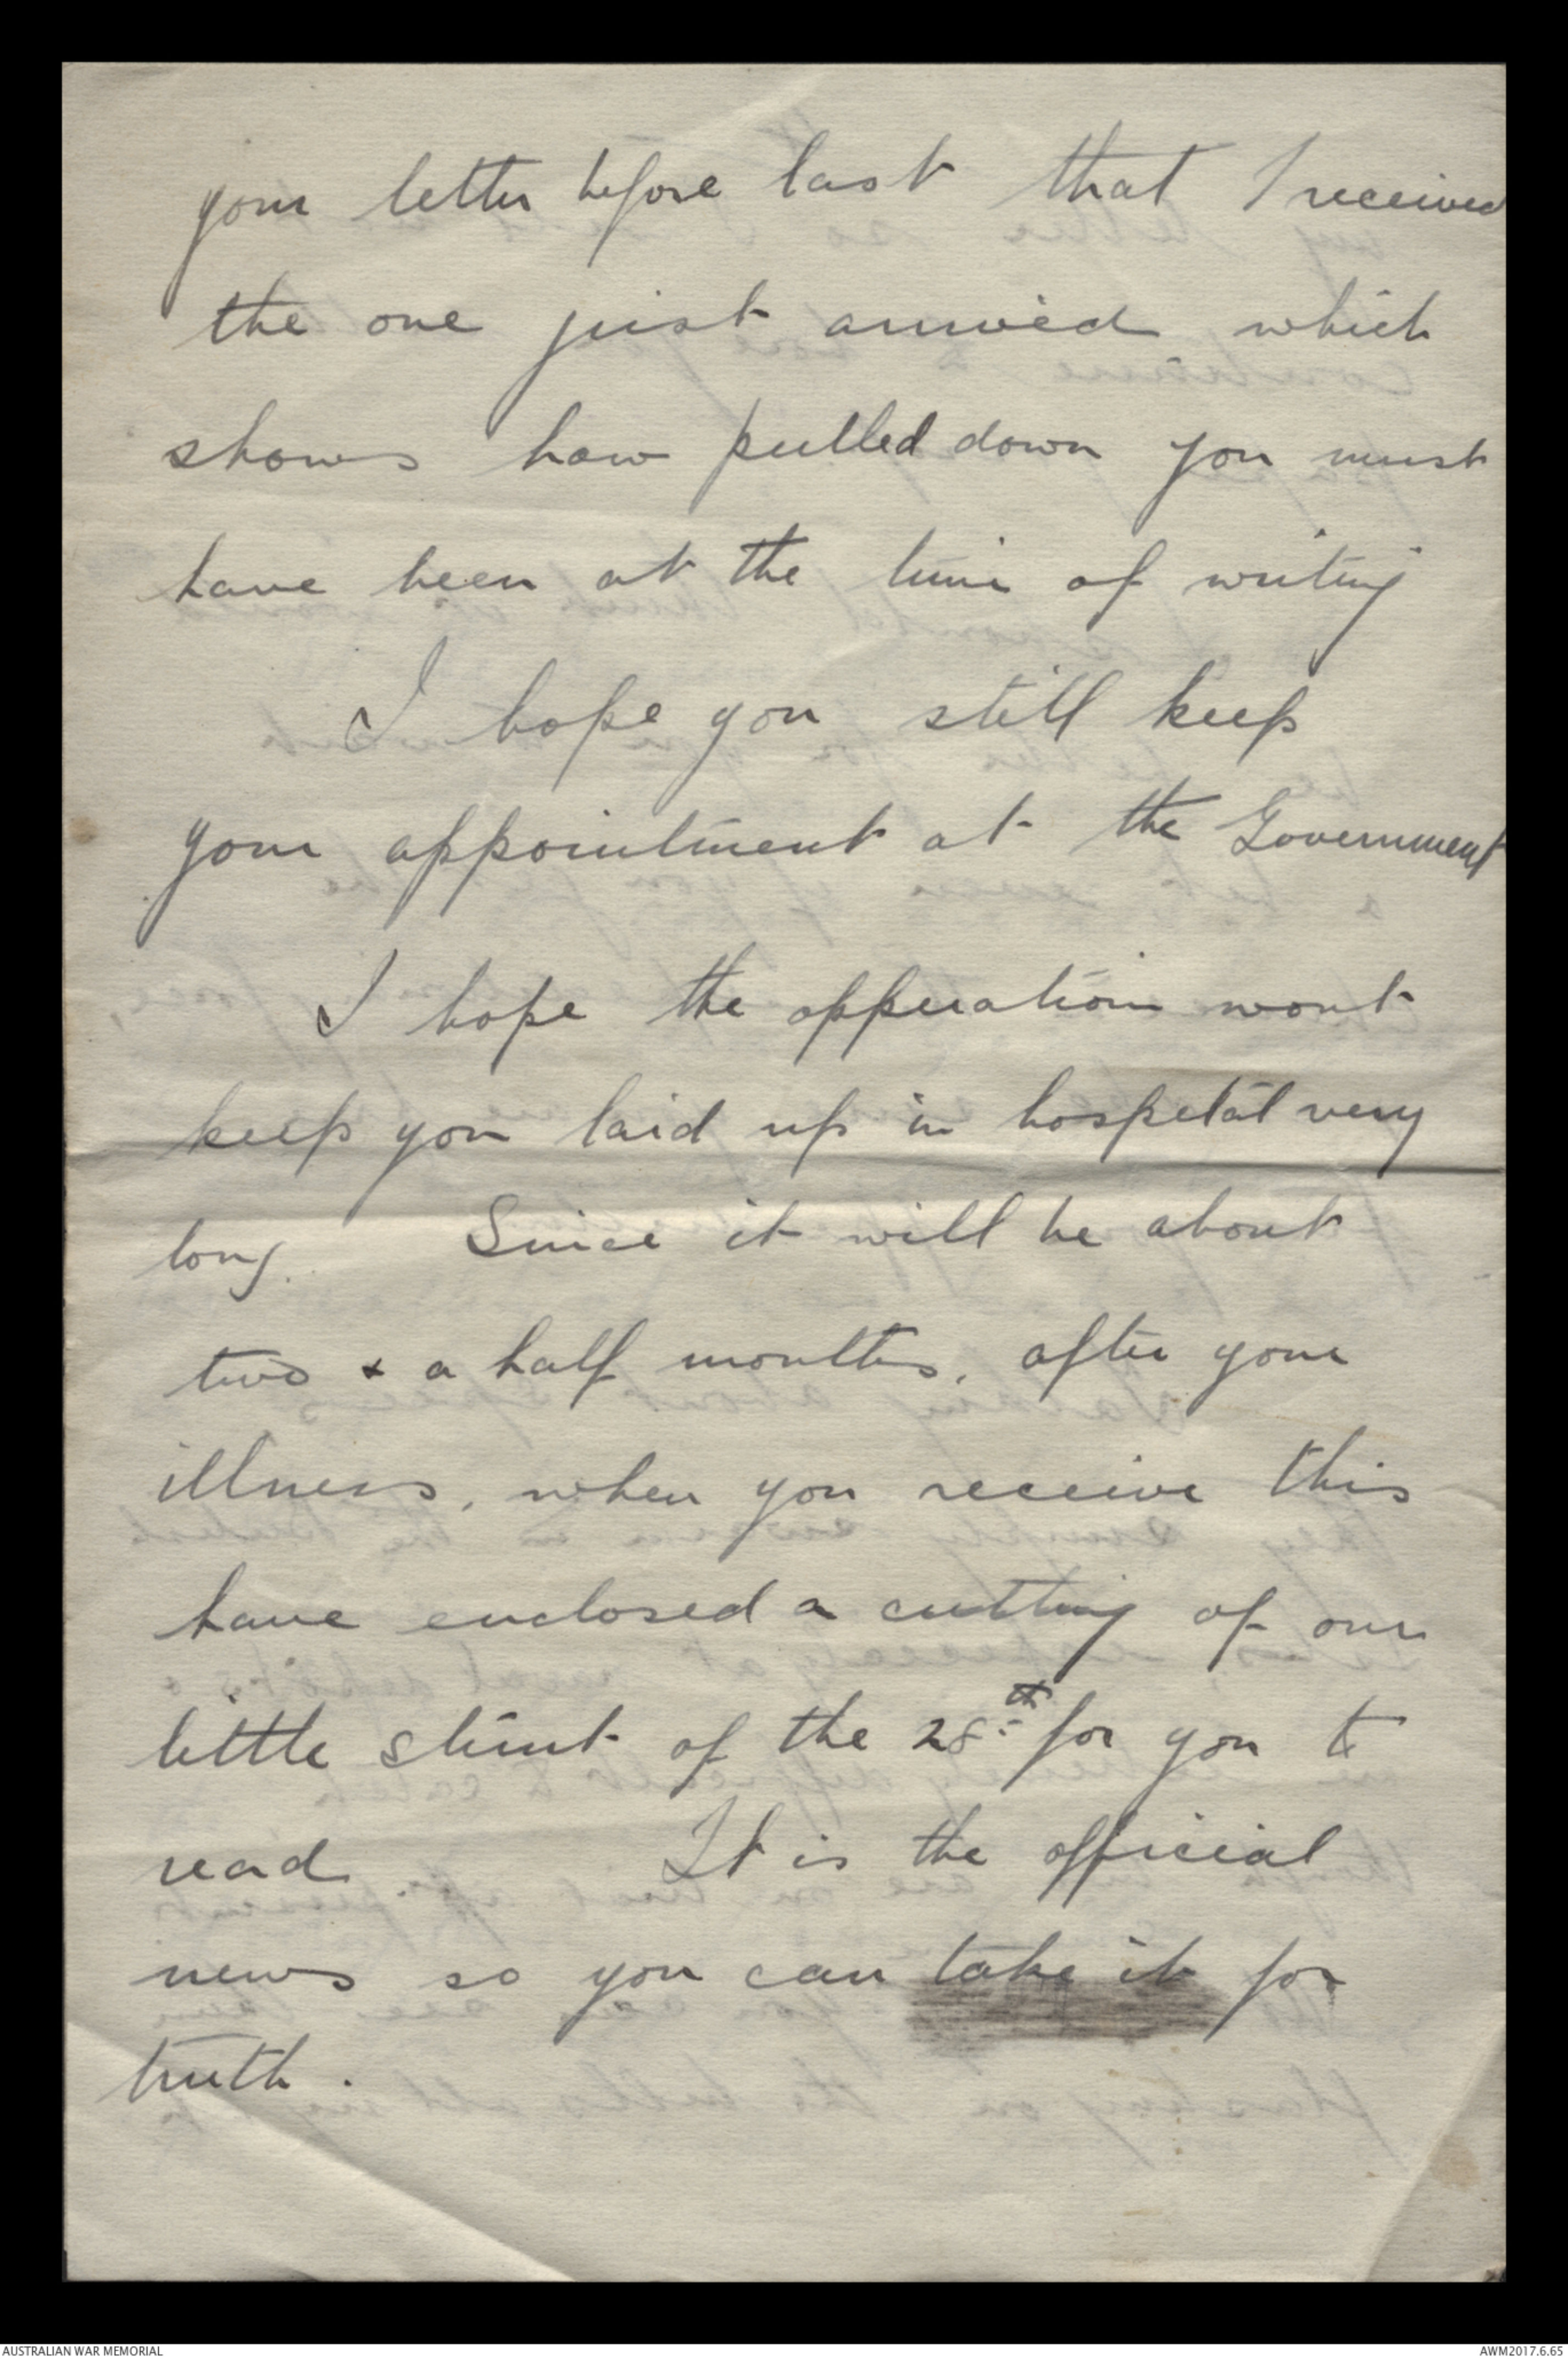 your letter before last that I received
the one just arrived which
shows how pulled down you must
have been at the time of writing
I hope you still keep
your appointment at the Government
I hope the opperation wont
keep you laid up in hospetal very
long. Since it will be about
two & a half months, after your
illness, when you receive this
have enclosed a cutting of our
little stunt of the 28th for you to
read It is the official
news so you can take it for
truth.
AUSTRALIAN WAR MEMORIAL
AWM2017.6.65